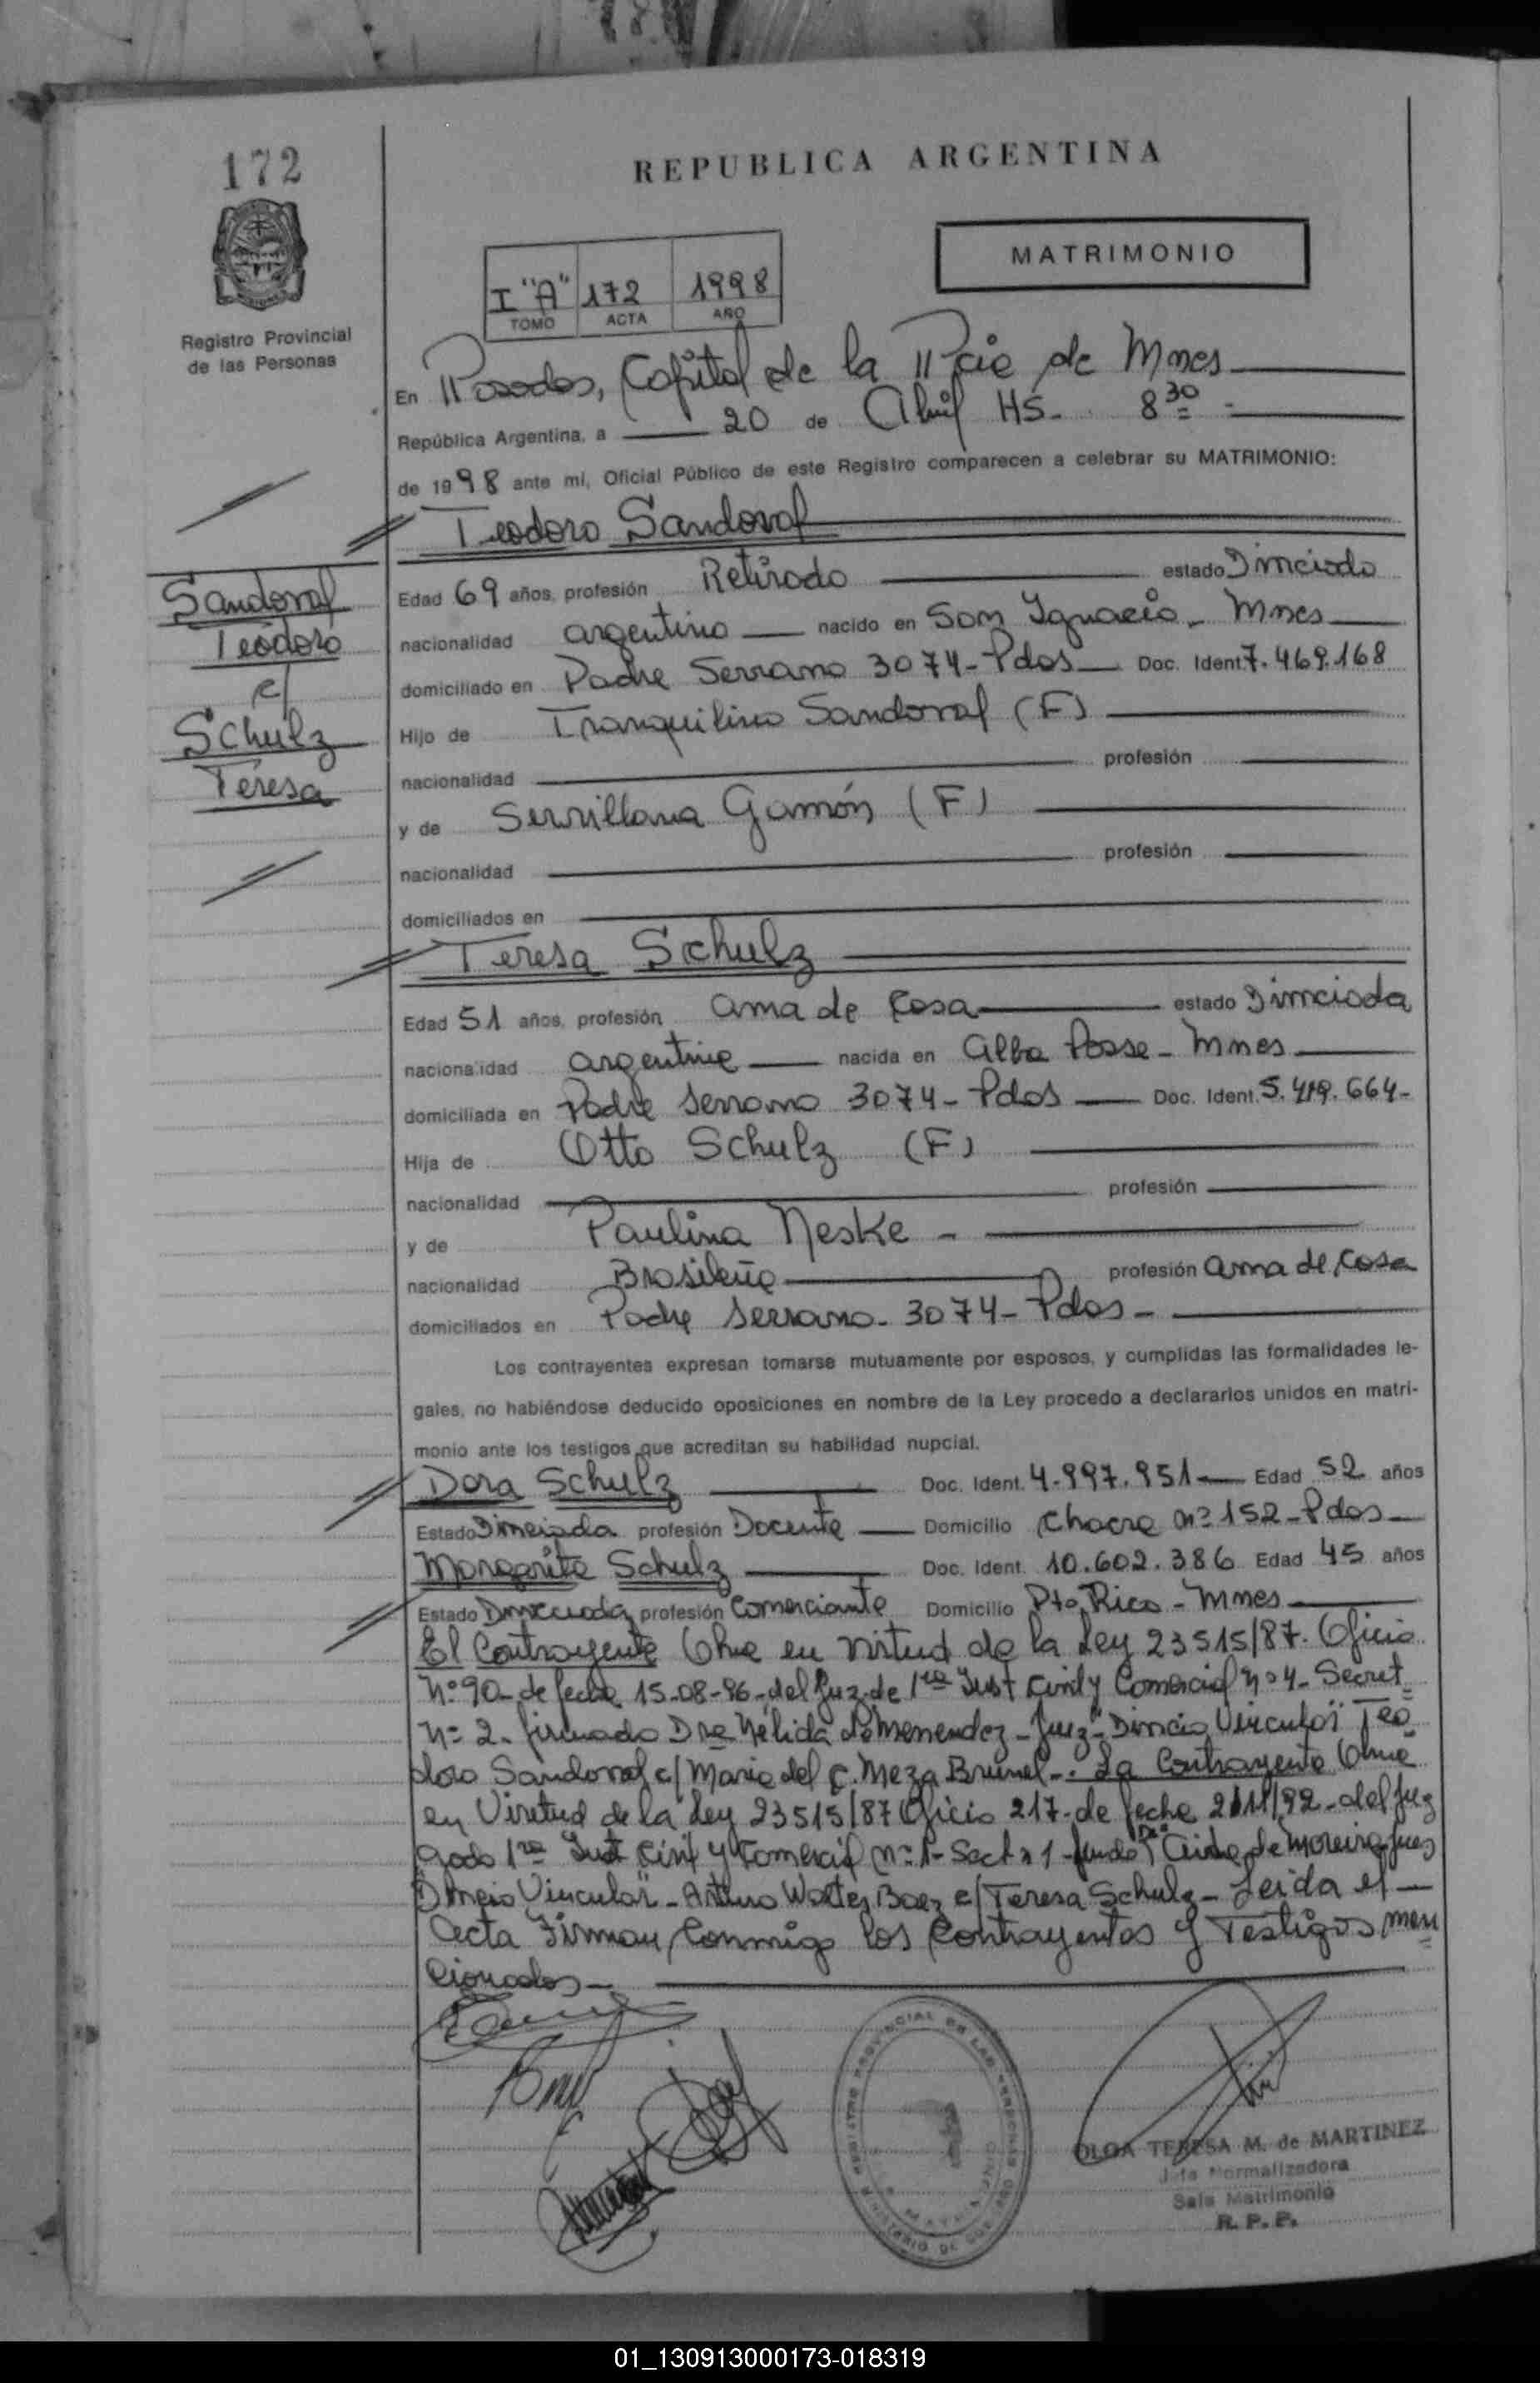 172
REPUBLICA ARGENTINA
MATRIMONIO
I "A" 172 1998
TOMO ACTA AÑO
Registro Provincial
de las Personas
En Posadas, Capital de la Pcia de Mnes
República Argentina, a 20 de Abril HS. 8 30
de 1998 ante mi, Oficial Público de este Registro comparecen a celebrar su MATRIMONIO:
Teodoro Sandoval
Sandoval
Teodoro
c/
Schulz
Teresa
Edad 69 años, profesión Retirado estado Divorciado
nacionalidad argentino nacido en San Ignacio - Mnes
domiciliado en Padre Serrano 3074 - Pdas Doc. Ident. 7.469.168
Hijo de Tranquilino Sandoval (F)
nacionalidad profesión
y de Servillana Gamón (F)
nacionalidad profesión
domiciliados en
Teresa Schulz
Edad 51 años, profesión ama de casa estado Divorciada
nacionalidad argentina nacida en Alba Posse - Mnes
domiciliada en Padre Serrano 3074 - Pdas Doc. Ident. 5.419.664-
Hija de Otto Schulz (F)
nacionalidad profesión
y de Paulina Neske -
nacionalidad Brasileña profesión ama de casa
domiciliados en Padre Serrano - 3074 - Pdas -
Los contrayentes expresan tomarse mutuamente por esposos, y cumplidas las formalidades le-
gales, no habiéndose deducido oposiciones en nombre de la Ley procedo a declararlos unidos en matri-
monio ante los testigos que acreditan su habilidad nupcial.
Dora Schulz Doc. Ident. 4.997.951 Edad 52 años
Estado Divorciada profesión Docente Domicilio Chacra nº 152 - Pdas
Margarita Schulz Doc. Ident. 10.602.386 Edad 45 años
Estado Divorciada profesión Comerciante Domicilio Pto Rico - Mnes
El Contrayente Obra en virtud de la Ley 23515/87. Oficio
Nº 90 - de fecha 15-08-96 - del Juz. de 1ra Inst Civil y Comercial nº 4 - Secret
Nº 2 - firmado Dra Nélida de Menendez - Juez - "Divorcio Vincular" Teo
doro Sandoval c/ Maria del C. Meza Brunel -. La Contrayente Obra
en Virtud de la Ley 23515/87 Oficio 217 - de fecha /92 - del Juz
gado 1ra Inst Civil y Comercial nº 1 - Sect n 1 - de Moreira Juez
Divorcio Vincular" - Arturo Walter Baez c/ Teresa Schulz - Leida el
Acta Firman Conmigo los Contrayentes y Testigos men
cionados -
OLGA TERESA M. de MARTINEZ
Jefa Normalizadora
Sala Matrimonio
R. P. P.
01_130913000173-018319